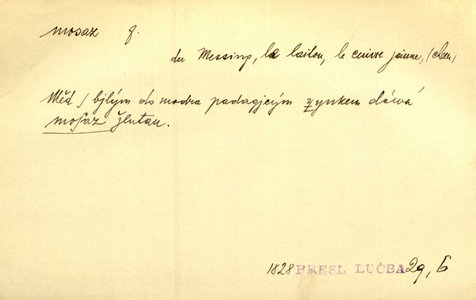 mosaz f.
der Messing, le laiton, le cuivre jaune, (chem)
Měď s bjlým do modra padagjcým zynkem dáwá
mosaz žlutau.
1828 PRESL LUČBA 29, b